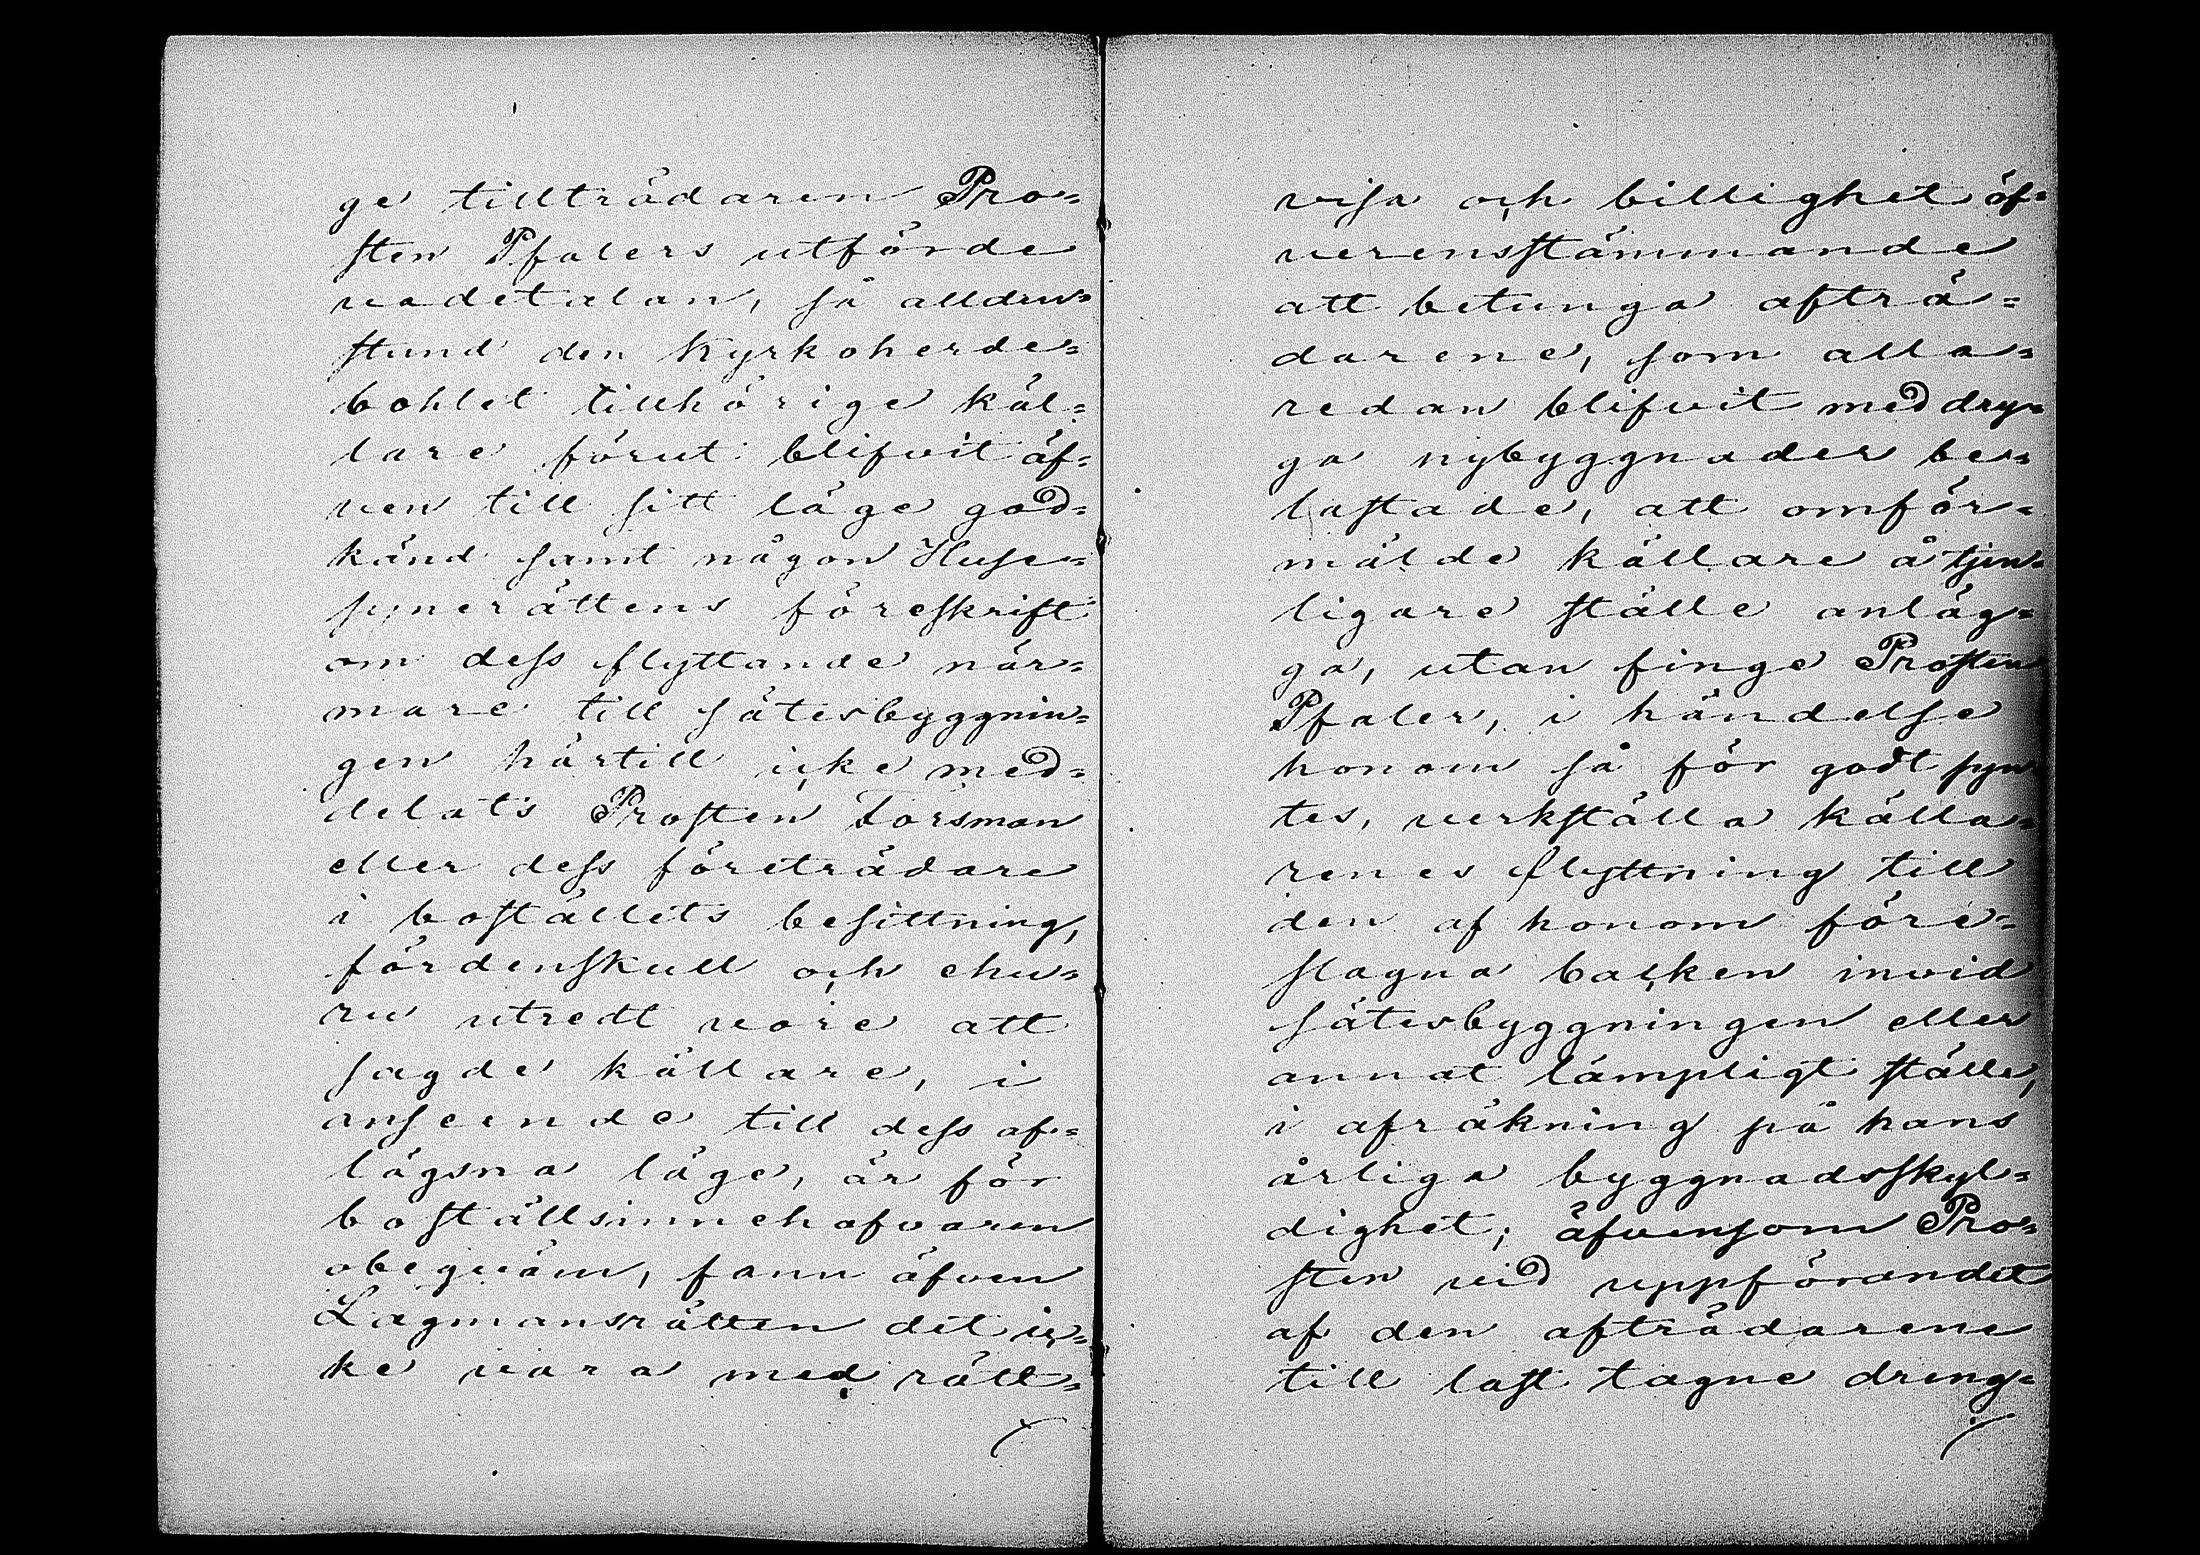 ge tillträdaren Pro=
sten Pfalers utförde
vadetalan, så allden=
stund den Kyrkoherde=
bohlet tillhörige käl=
lare förut blifvit äf=
ven till sitt läge god=
känd samt någon Huse=
synerättens föreskrift
om dess flyttande när=
mare till sätesbyggnin=
gen härtill icke med=
delats Prosten Forsman
eller dess företrädare
i boställets besittning,
fördenskull och ehu=
ru utredt vore att
sagde källare, i
anseende till dess af=
lägsna läge, är för
boställsinnehafvaren
obeqväm, fann äfven
Lagmansrätten det ic=
ke vara med rätt=
visa och billighet öf=
verensstämmande
att betunga afträ=
darene, som alla=
redan blifvit med dry=
ga nybyggnader be=
lastade, att omför=
mälde källare å tjen=
ligare ställe anläg=
ga, utan finge Prosten
Pfaler, i händelse
honom så för godt syn
tes, verkställa källa=
renes flyttning till
den af honom före=
slagna backen invid
sätesbyggningen eller
annat lämpligt ställe,
i afräkning på hans
årliga byggnadsskyl=
dighet; äfvensom Pro=
sten vid uppförandet
af den afträdarene
till last tagne dreng=